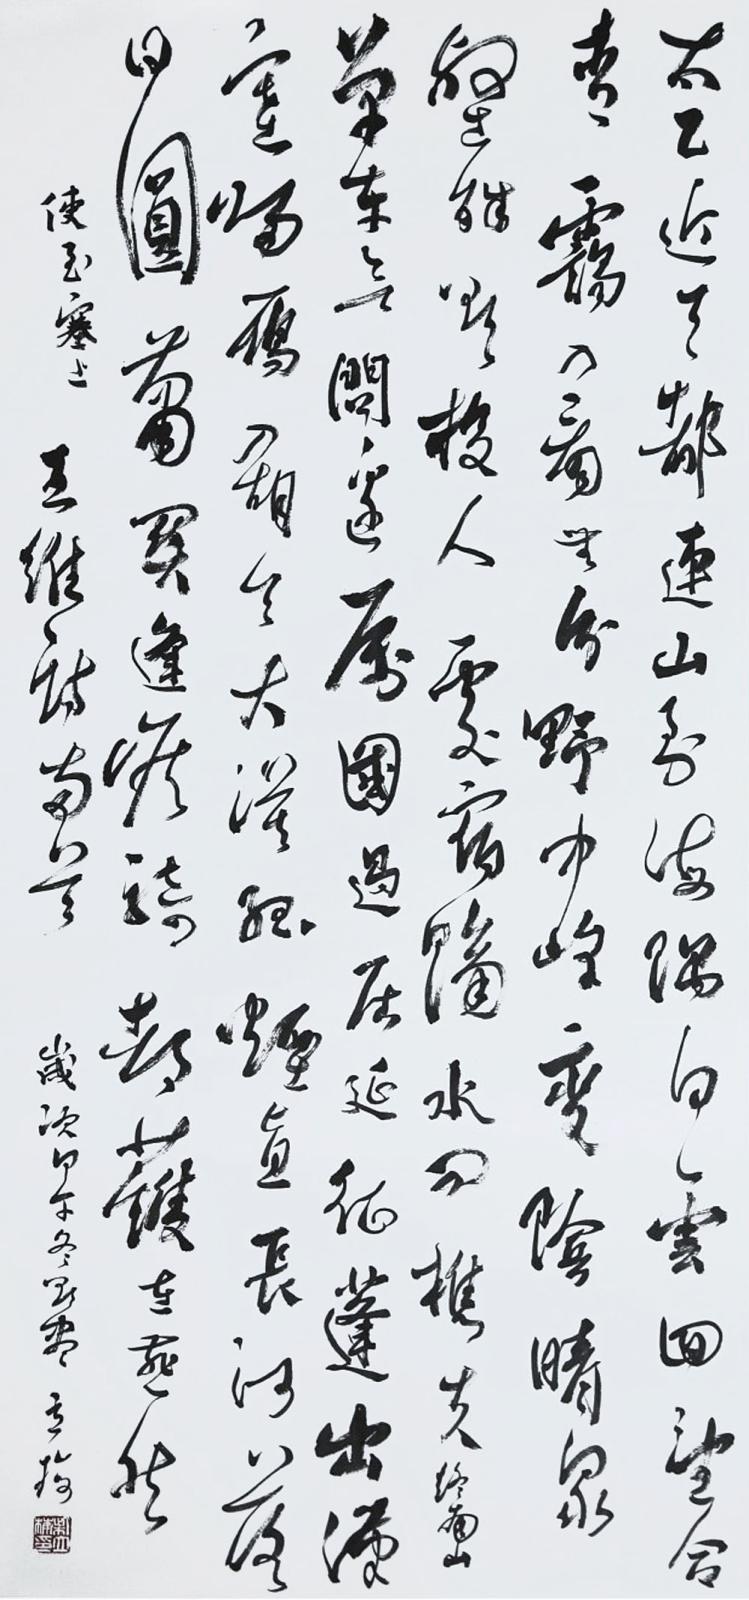 太乙近天都連山到海隅白雲回望合
青靄入看無分野中峰變陰晴衆
壑殊欲投人處宿隔水問樵夫 終南山
單車問邊屬國過居延征蓬出漢
塞歸雁入胡天大漠孤煙直長河落
日圓蕭關逢候騎都護在燕然
使至塞上 王維詩兩首 歲次甲午冬